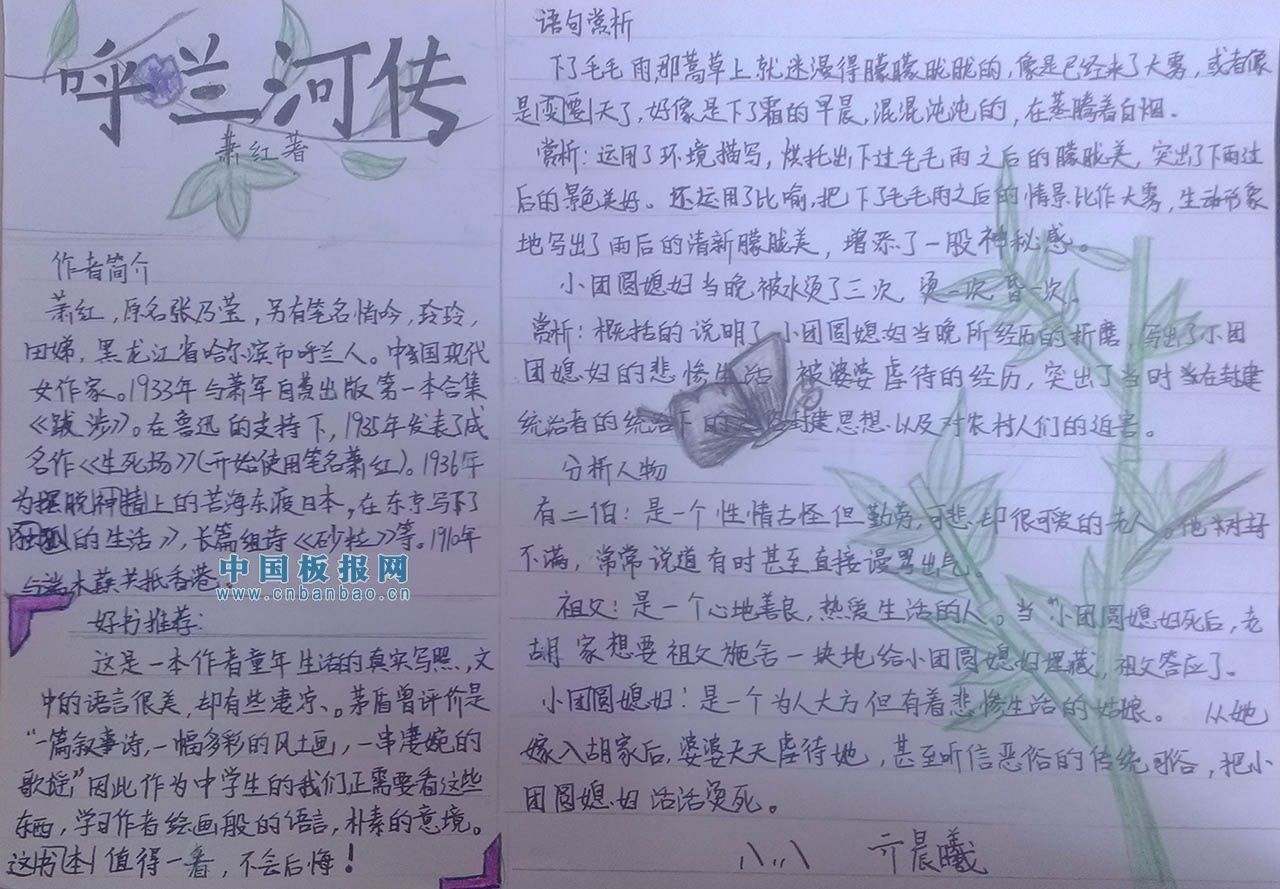 呼兰河传
萧红著
作者简介
萧红，原名张乃莹，另有笔名悄吟，玲玲，
田娣，黑龙江省哈尔滨市呼兰人。中国现代
女作家。1933年与萧军自费出版第一本合集
《跋涉》。在鲁迅的支持下，1935年发表了成
名作《生死场》(开始使用笔名萧红)。1936年
为摆脱精神上的苦海东渡日本，在东京写下了
的生活》，长篇组诗《砂粒》等。1910年
与端木蕻共抵香港。
中国板报网
www.cnbanbao.cn
好书推荐：
这是一本作者童年生活的真实写照，文
中的语言很美，却有些凄凉、。茅盾曾评价是
“一篇叙事诗，一幅多彩的风土画，一串凄婉的
歌谣”因此作为中学生的我们正需要看这些
东西，学习作者绘画般的语言，朴素的意境。
这书本值得一看，不会后悔！
语句赏析
下了毛毛雨，那蒿草上就迷漫得朦朦胧胧的，像是已经来了大雾，或者像
是要变天了，好像是下了霜的早晨，混混沌沌的，在蒸腾着白烟。
赏析：运用了环境描写，烘托出下过毛毛雨之后的朦胧美，突出了下雨过
后的景色美好。还运用了比喻，把下了毛毛雨之后的情景比作大雾，生动形象
地写出了雨后的清新朦胧美，增添了一股神秘感。
小团圆媳妇当晚被水烫了三次，烫一次，昏一次。
赏析：概括的说明了小团圆媳妇当晚所经历的折磨，写出了小团
团媳妇的悲惨生活，被婆婆虐待的经历，突出了当时当在封建
统治者的统治下的封建思想以及对农村人们的迫害。
分析人物
有二伯：是一个性情古怪但勤劳，可悲却很可爱的老人。他对
不满，常常说道有时甚至直接谩骂出气。
祖父：是一个心地善良，热爱生活的人。当“小团圆媳妇死后，老
胡家想要祖父施舍一块地给小团圆媳妇埋藏，祖父答应了。
小团圆媳妇：是一个为人大方但有着悲惨生活的姑娘。 从她
嫁入胡家后，婆婆天天虐待她，甚至听信恶俗的传统习俗，把小
团圆媳妇活活烫死。
八.八 亓晨曦